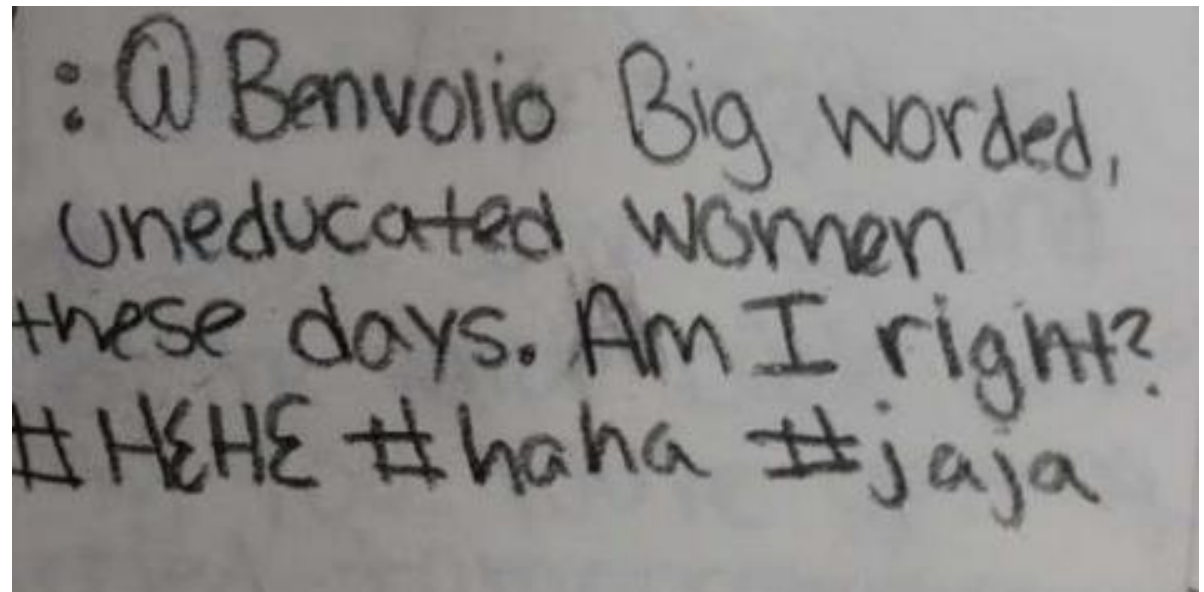 : @Benvolio Big worded,
uneducated women
these days. Am I right?
#HEHE #haha #jaja